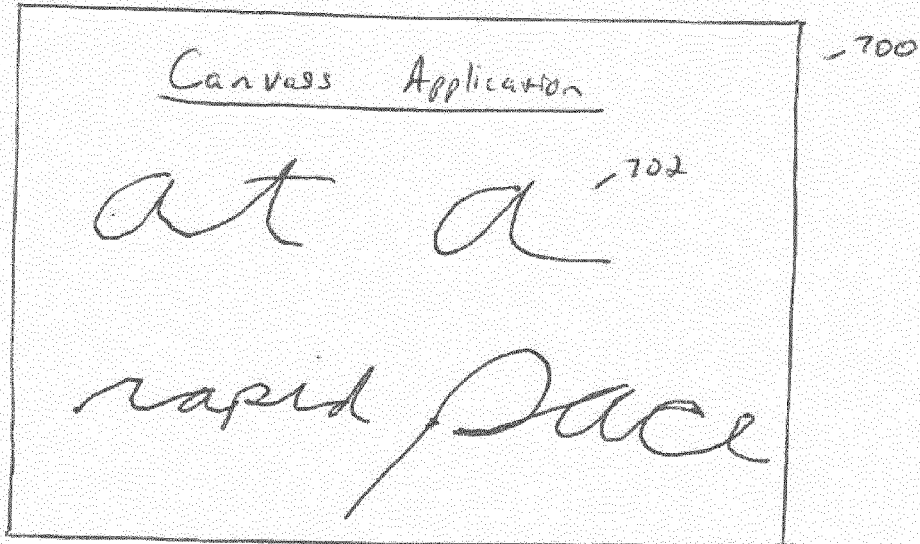 Canvass Application
700
at a
702
rapid pace